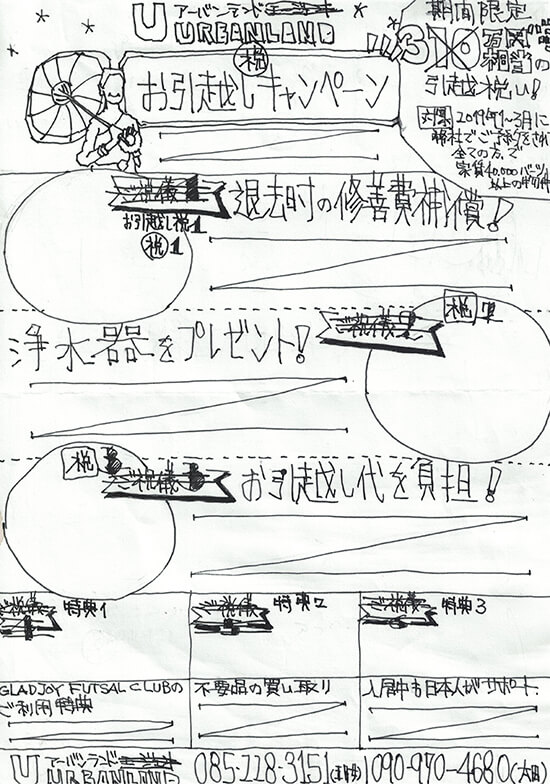 アーバンランド
URBANLAND
期間限定
お引越しキャンペーン
祝
引越祝い!
対象 2019年1~3月に
弊社でご予約をされ
全ての方で
家賃40,000バーツ
以上の物件
退去時の修善費補償!
お引越し祝1
祝1
浄水器をプレゼント!
ご祝儀
祝
お引越し代を負担!
祝
ご祝儀
特典1
特典2
特典3
GLADJOY FUTSAL CLUBの
ご利用特典
不要品の買い取り
入居中も日本人がサポート
アーバンランド
URBANLAND
085-228-3151
090-970-4680